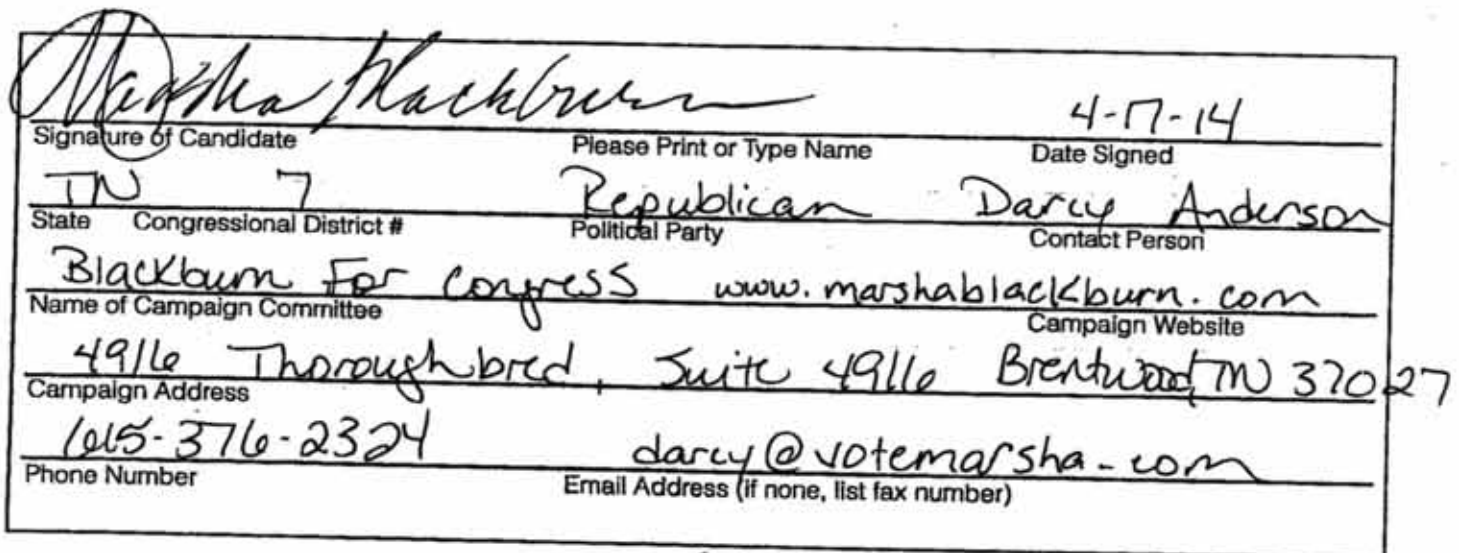 Marsha Blackburn 4-17-14
Signature of Candidate Please Print or Type Name Date Signed
TN 7 Republican Darcy Anderson
State Congressional District # Political Party Contact Person
Blackburn For Congress www.marshablackburn.com
Name of Campaign Committee Campaign Website
4916 Thoroughbred, Suite 4916 Brentwood, TN 37027
Campaign Address
615-376-2324 darcy@votemarsha.com
Phone Number Email Address (if none, list fax number)